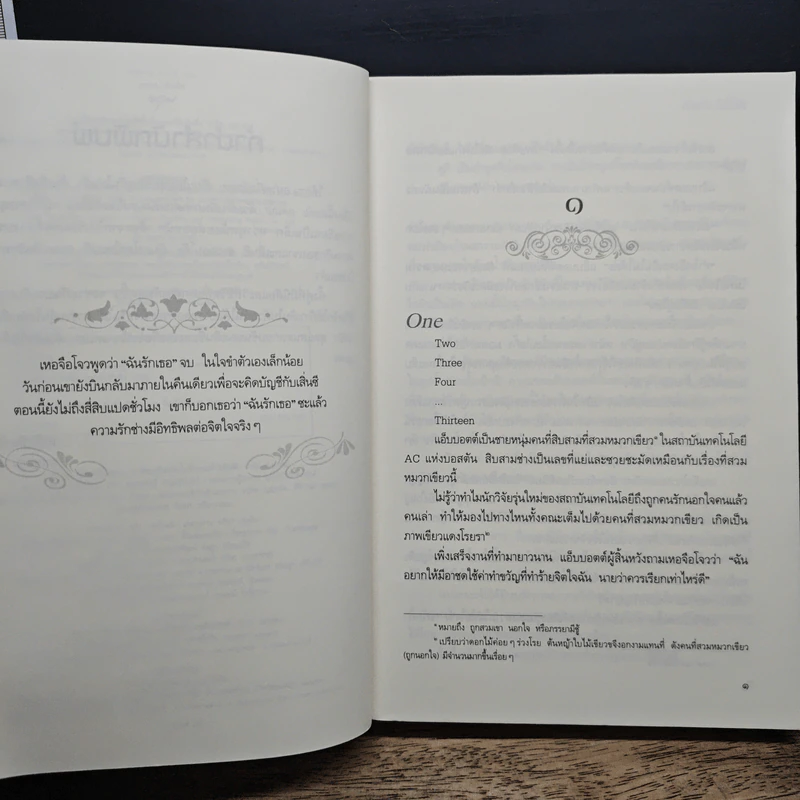 เหอจือโจวพูดว่า “ฉันรักเธอ” จบ ในใจขำตัวเองเล็กน้อย
วันก่อนเขายังบินกลับมาภายในคืนเดียวเพื่อจะคิดบัญชีกับเสิ่นซี
ตอนนี้ยังไม่ถึงสี่สิบแปดชั่วโมง เขาก็บอกเธอว่า “ฉันรักเธอ” ซะแล้ว
ความรักช่างมีอิทธิพลต่อจิตใจจริง ๆ
๑
One
Two
Three
Four
...
Thirteen
แอ็บบอตต์เป็นชายหนุ่มคนที่สิบสามที่สวมหมวกเขียว ในสถาบันเทคโนโลยี
AC แห่งบอสตัน สิบสามช่างเป็นเลขที่แย่และซวยชะมัดเหมือนกับเรื่องที่สวม
หมวกเขียวนี้
ไม่รู้ว่าทำไมนักวิจัยรุ่นใหม่ของสถาบันเทคโนโลยีถึงถูกคนรักนอกใจคนแล้ว
คนเล่า ทำให้มองไปทางไหนทั้งคณะเต็มไปด้วยคนที่สวมหมวกเขียว เกิดเป็น
ภาพเขียวแดงโรยรา
เพิ่งเสร็จงานที่ทำมายาวนาน แอ็บบอตต์ผู้สิ้นหวังถามเหอจือโจวว่า “ฉัน
อยากให้มีอาชดใช้ค่าทำขวัญที่ทำร้ายจิตใจฉัน นายว่าควรเรียกเท่าไหร่ดี”
หมายถึง ถูกสวมเขา นอกใจ หรือภรรยามีชู้
เปรียบว่าดอกไม้ค่อย ๆ ร่วงโรย ต้นหญ้าใบไม้เขียวขจีงอกงามแทนที่ ดังคนที่สวมหมวกเขียว
(ถูกนอกใจ) มีจำนวนมากขึ้นเรื่อย ๆ